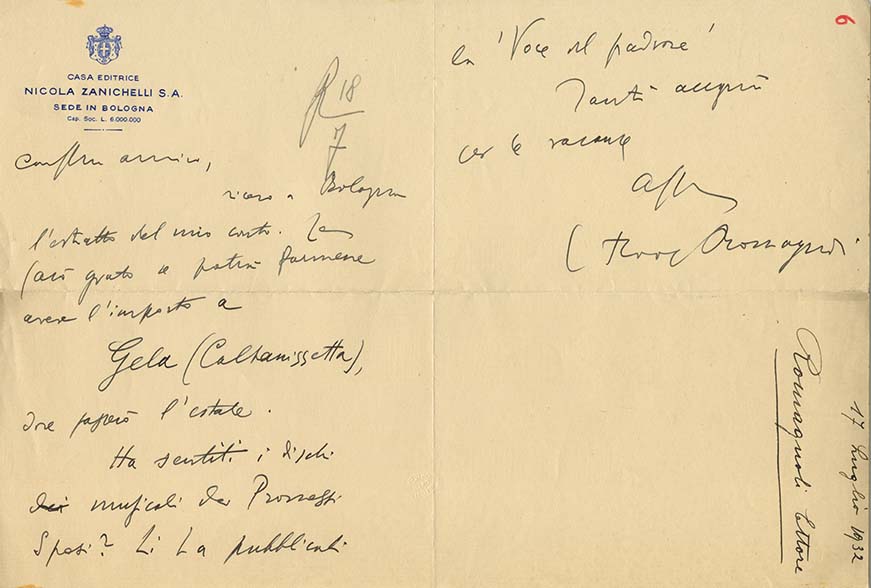 CASA EDITRICE
NICOLA ZANICHELLI S.A.
SEDE IN BOLOGNA
Cap. Soc. L. 6.000.000
R 18
7
amico,
ricevo a Bologna
l'estratto del mio conto. Le
sarò grato se potrà farmene
avere l'importo a
Gela (Caltanissetta),
ove passerò l'estate.
Ha sentiti i dischi
musicali dei Promessi
Sposi? Li ha pubblicati
la 'Voce del padrone'
Tanti auguri
per le vacanze
Romagnoli
6
17 Luglio 1932
Romagnoli Ettore